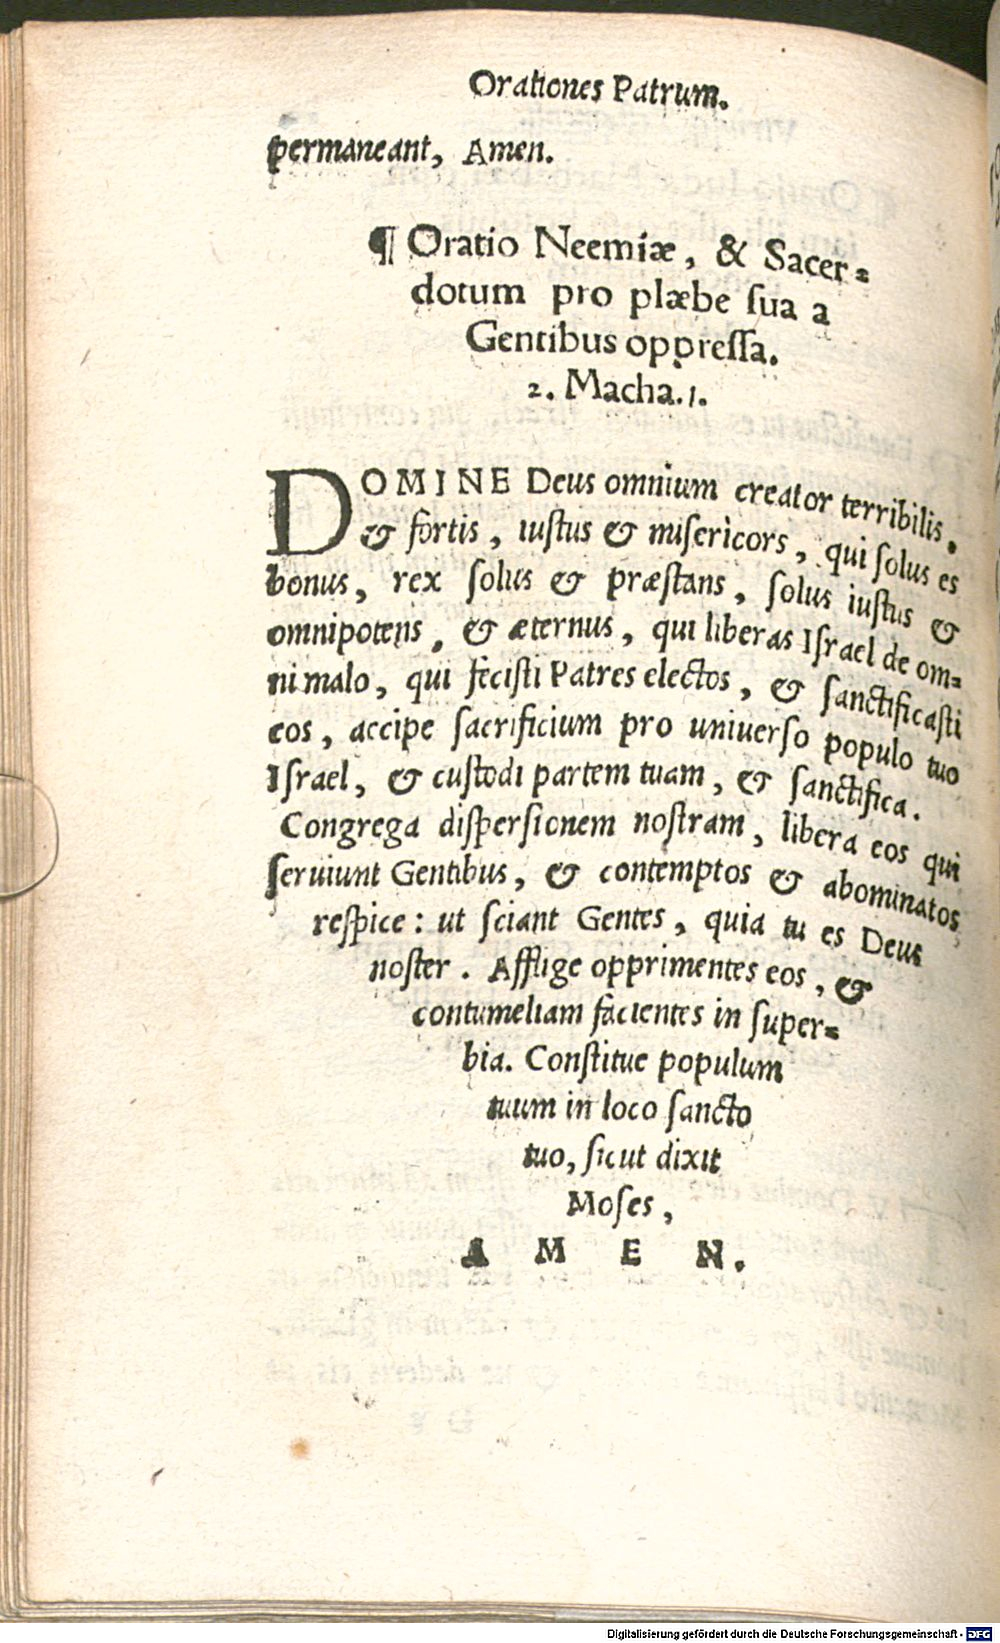 Orationes Patrum.
permaneant, Amen.
¶ Oratio Neemiæ, & Sacer=
dotum pro plæbe ſua a
Gentibus oppreſſa.
2. Macha. 1.
DOMINE Deus omnium creator terribilis,
& fortis, iuſtus & miſericors, qui ſolus es
bonus, rex ſolus & præſtans, ſolus iuſtus &
omnipotens, & æternus, qui liberas Iſrael de om=
ni malo, qui feciſti Patres electos, & ſanctificaſti
eos, accipe ſacrificium pro uniuerſo populo tuo
Iſrael, & cuſtodi partem tuam, & ſanctifica.
Congrega diſperſionem noſtram, libera eos qui
ſeruiunt Gentibus, & contemptos & abominatos
reſpice: ut ſciant Gentes, quia tu es Deus
noſter. Afflige opprimentes eos, &
contumeliam facientes in ſuper=
bia. Conſtitue populum
tuum in loco ſancto
tuo, ſicut dixit
Moſes,
A M E N.
Digitalisierung gefördert durch die Deutsche Forschungsgemeinschaft - DFG